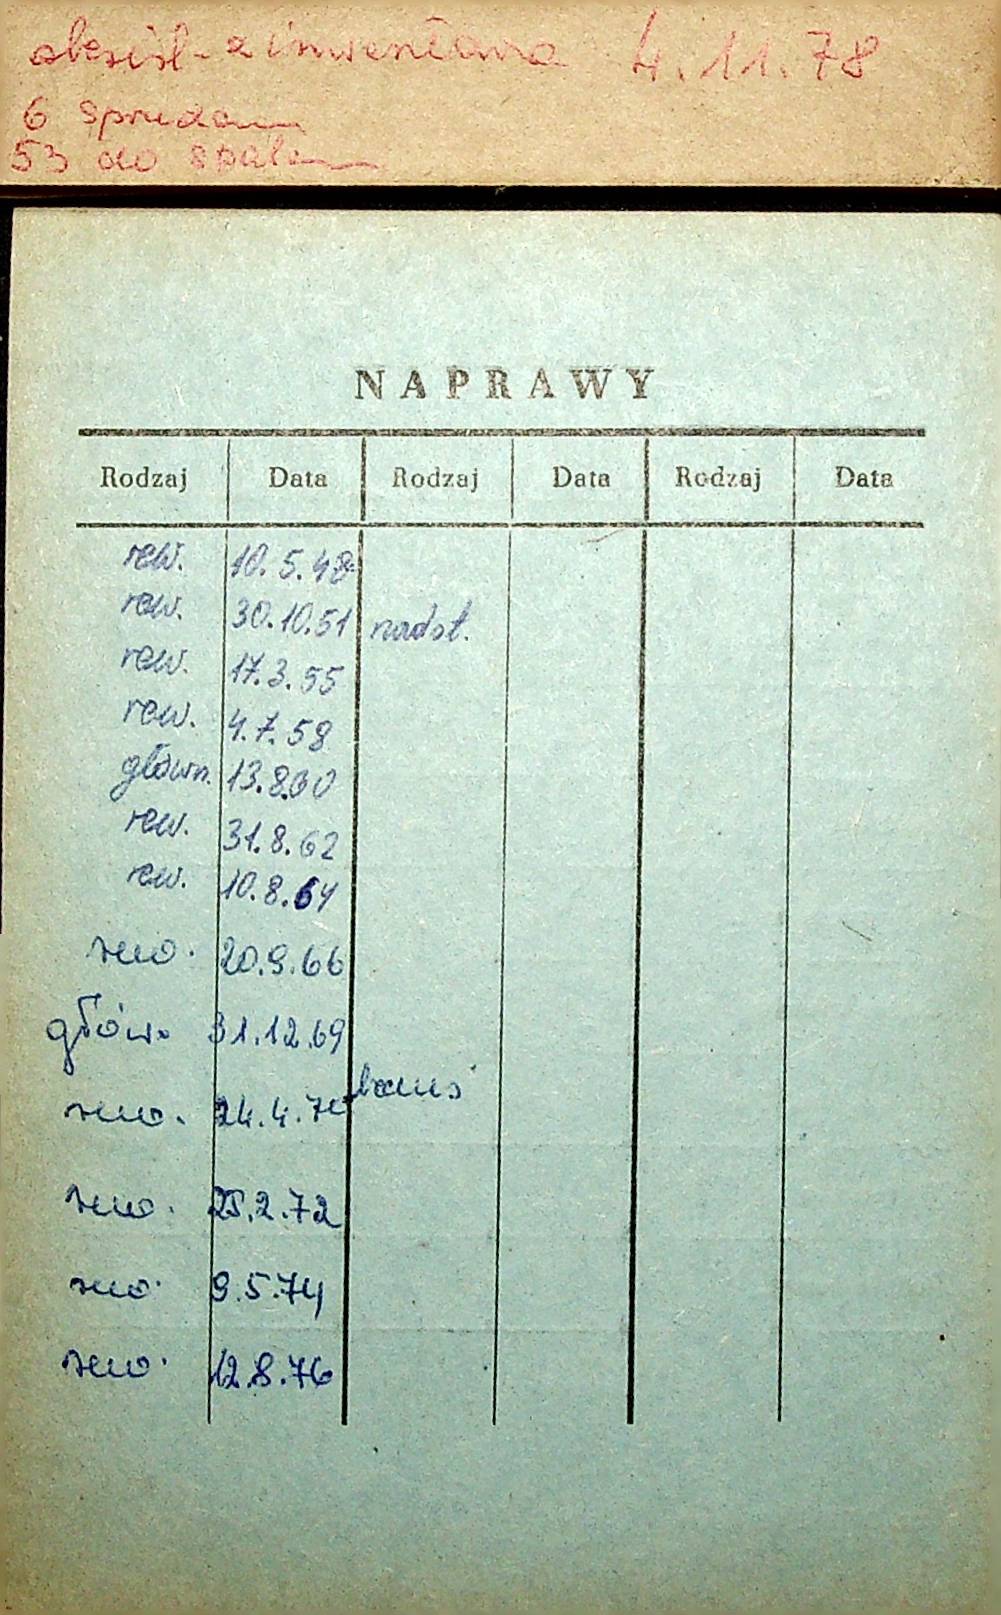 skreśl. z inwentarza 4.11.78
6 sprzedam
53 do spalen
NAPRAWY
Rodzaj Data Rodzaj Data Rodzaj Data
rew. 10.5.48
rew. 30.10.51 nadst.
rew. 17.3.55
rew. 4.7.58
główn. 13.8.60
rew. 31.8.62
rew. 10.8.64
rew. 20.9.66
głów. 31.12.69
rew. 24.4.70
rew. 25.2.72
rew. 9.5.74
rew. 12.8.76